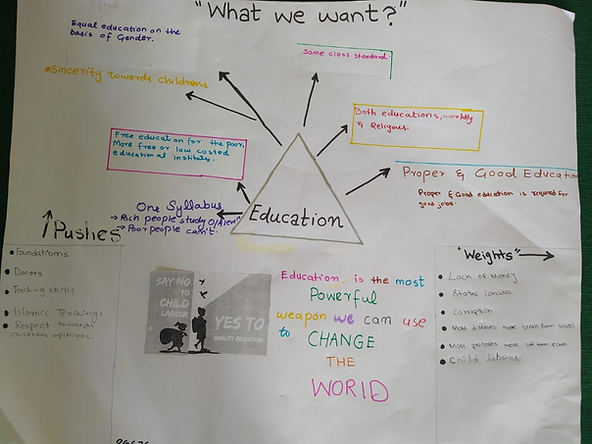 "What we want?"
Equal education on the
basis of Gender.
Same class standard
Sincerity towards childrens
Both educations, worldly
& Religious.
Free education for the poor,
More free or low costed
educational institutes.
Proper & Good Education
Proper & Good education is required for
good jobs.
One Syllabus
→ Rich people study O/Alevel
→ Poor people can't.
Education
Pushes
Foundations
Donors
Teaching skills
Islamic Teachings
Respect towards
childrens opinions.
SAY NO
TO
CHILD
LABOUR
YES TO
QUALITY EDUCATION
Education is the most
Powerful
weapon we can use
to CHANGE
THE
WORLD
"Weights"
Lack of Money
Status
Corruption
More diseases more break from
More protests more
Child labour